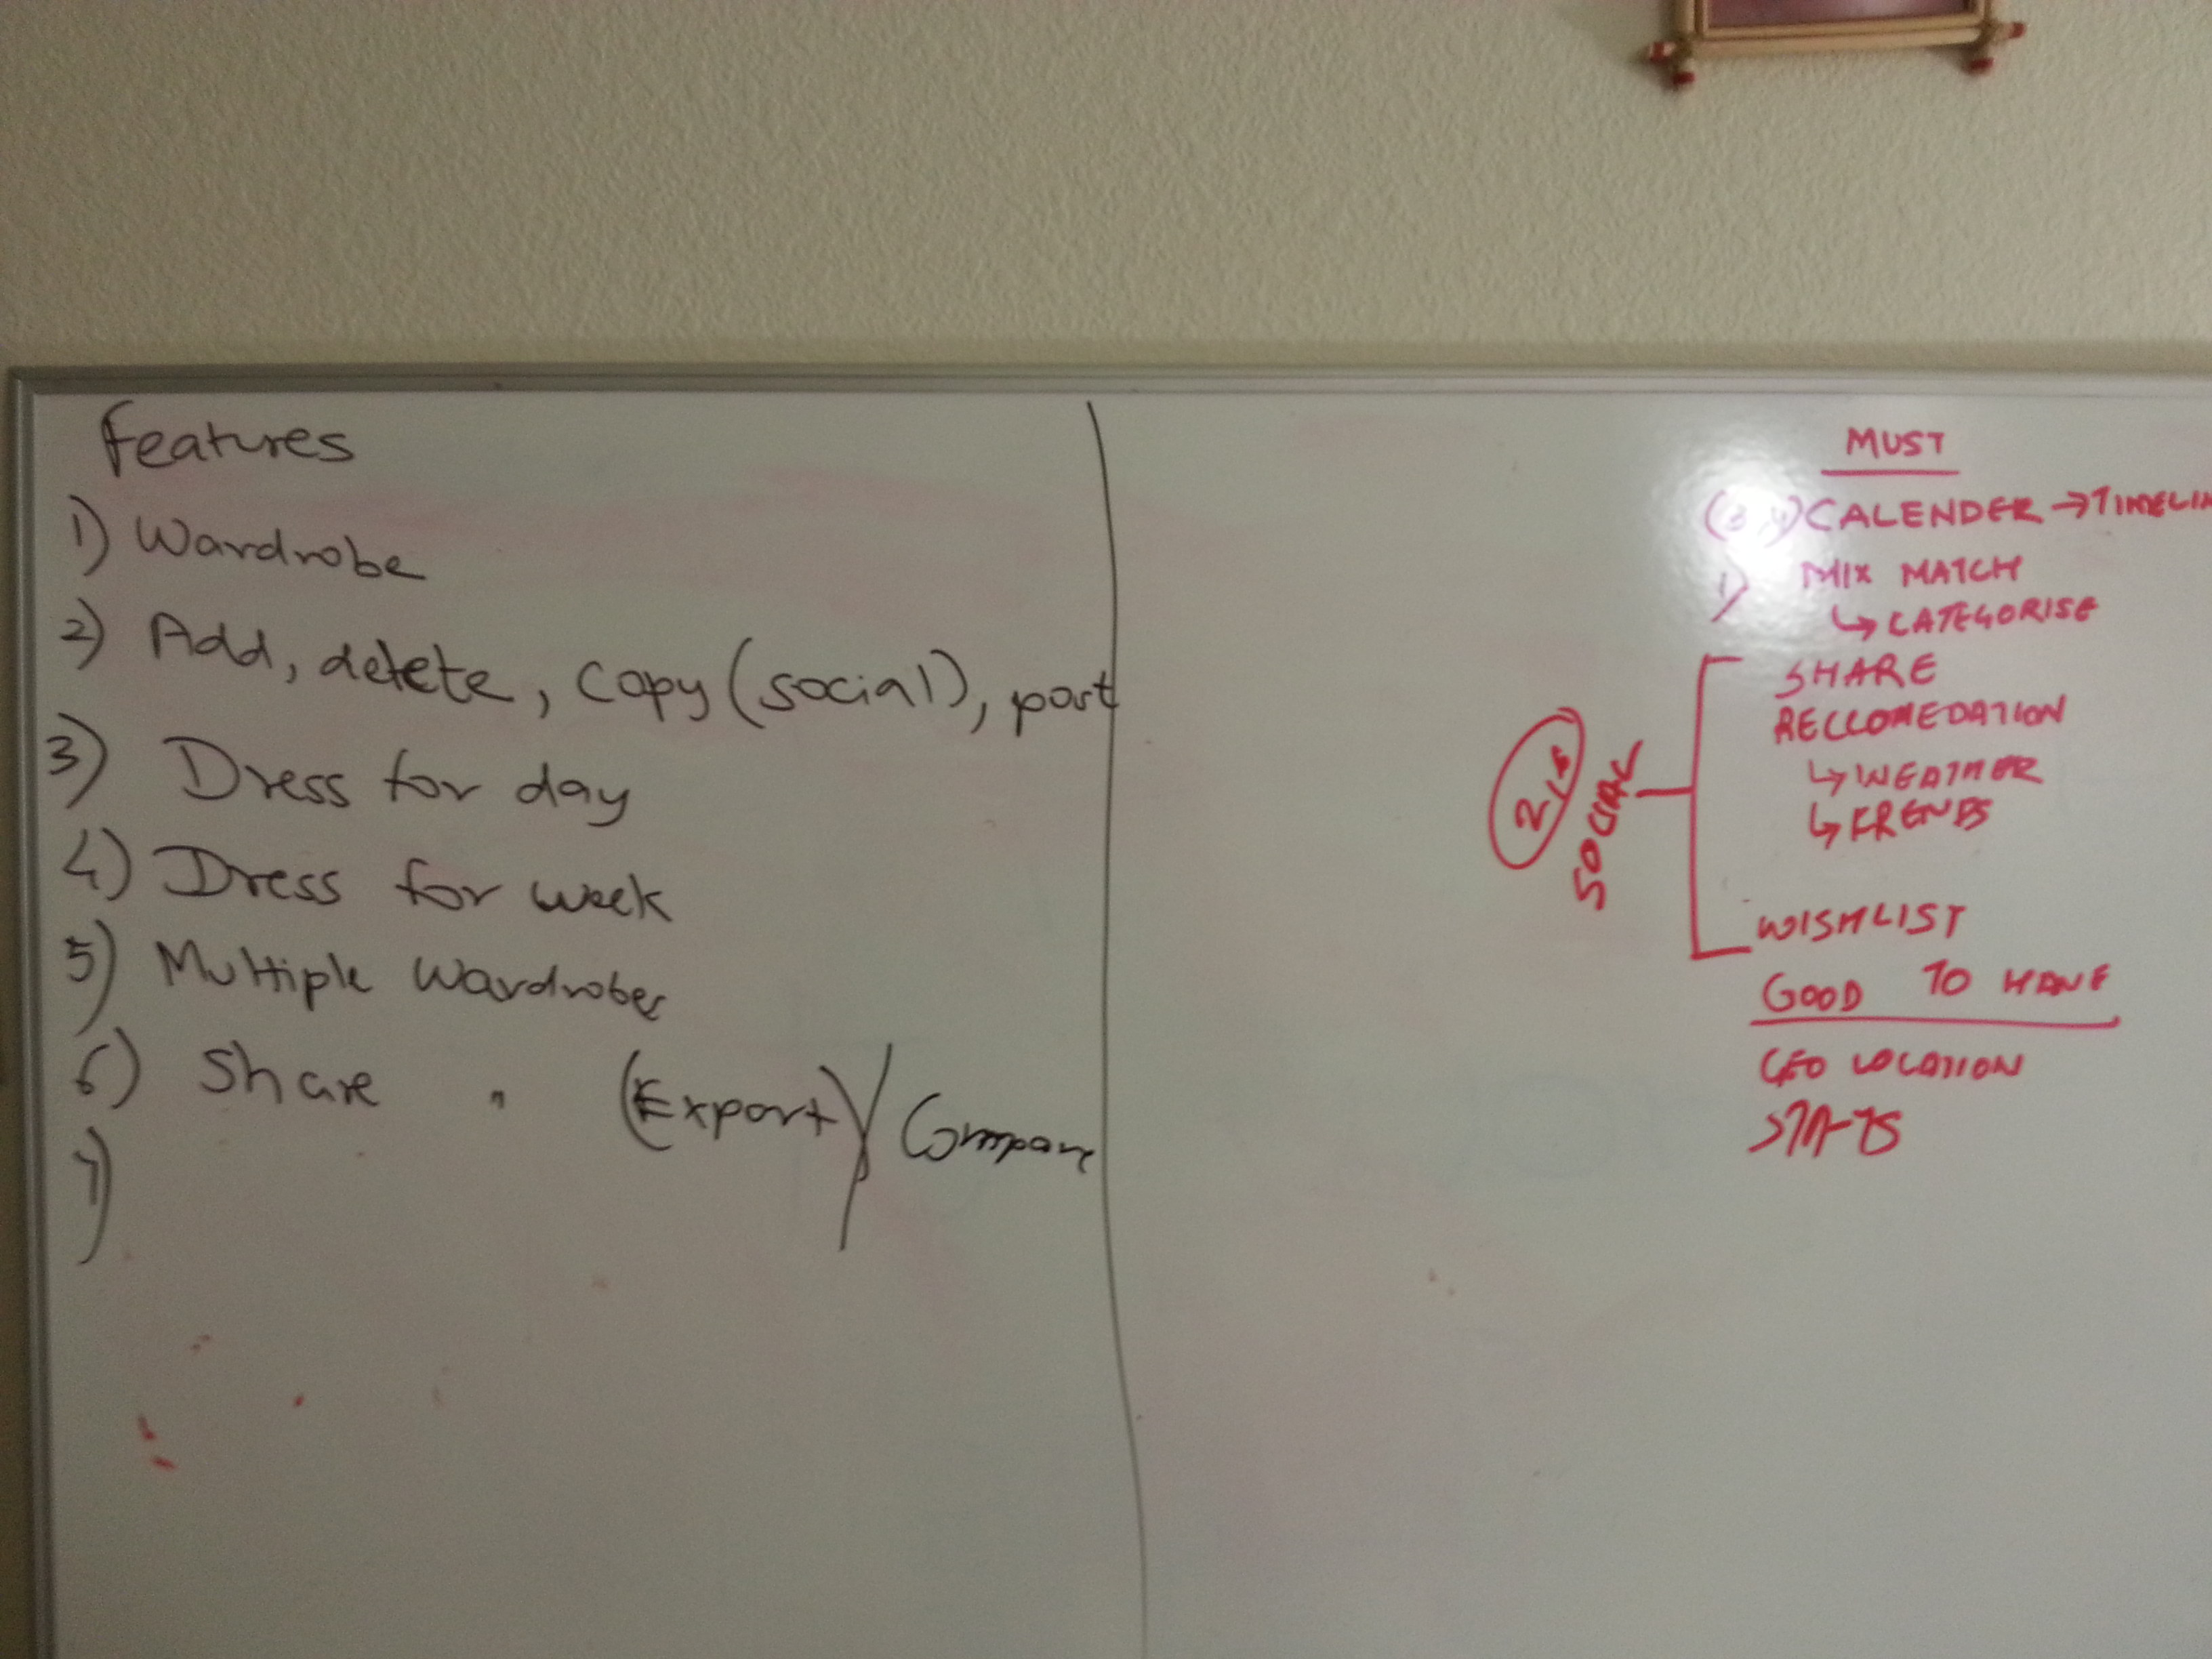 Features
1) Wardrobe
2) Add, delete, copy (social), port
3) Dress for day
4) Dress for week
5) Multiple Wardrobes
6) Share (Export) / Compare
7)
MUST
(3,4) CALENDER → TIMELIN
1) MIX MATCH
↳ CATEGORISE
SHARE
RECCOMEDATION
↳ WEATHER
↳ FRENDS
SOCIAL
WISHLIST
GOOD TO HAVE
GEO LOCATION
STATS